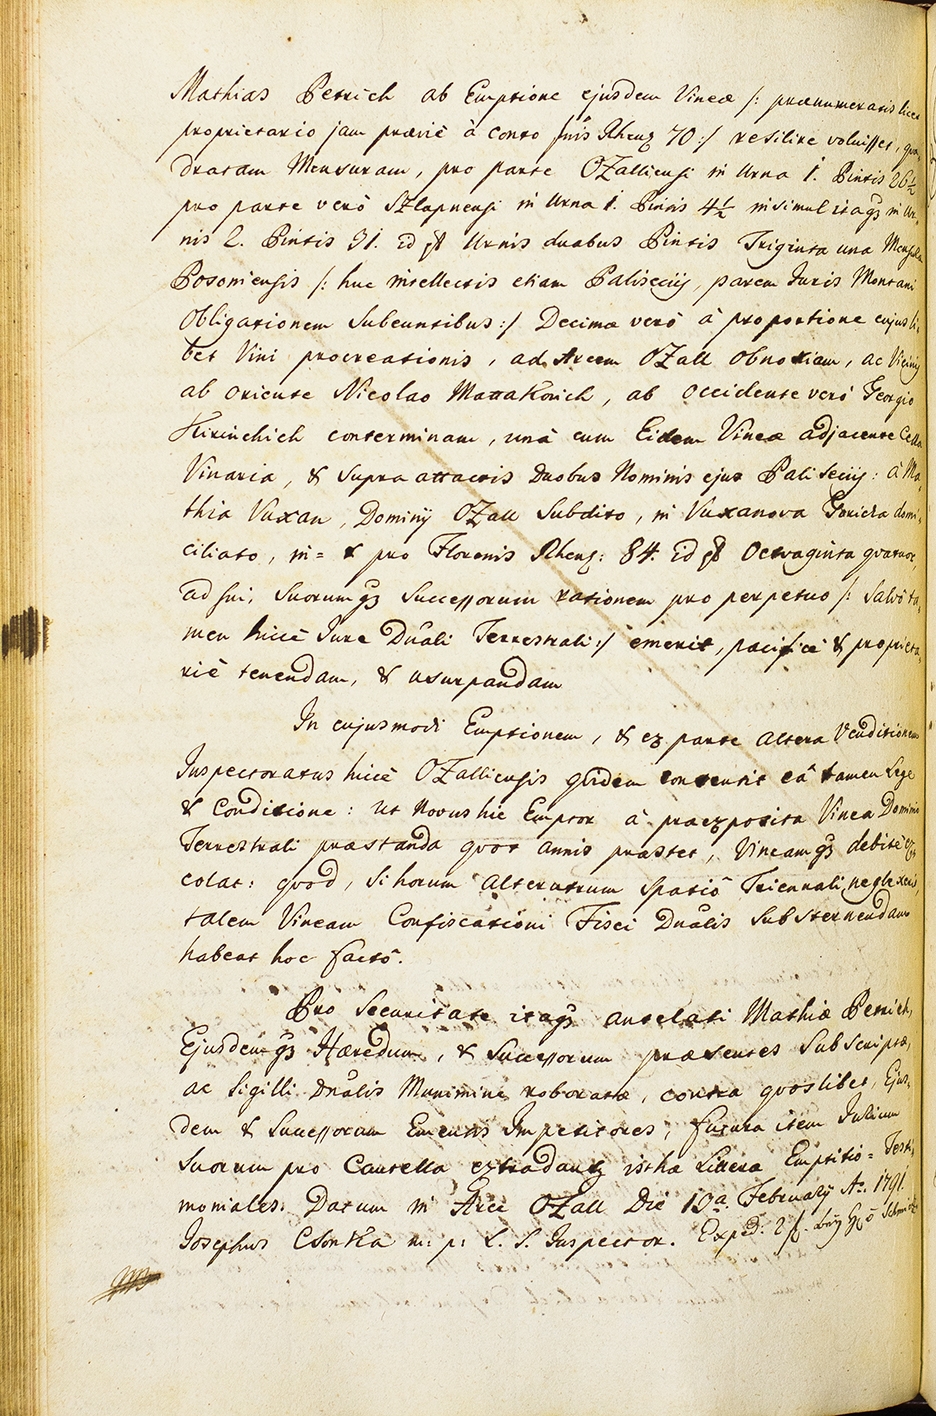 Mathias Petrich ab Emptione ejusdem Vineæ /: prænumeratis licet
proprietario jam præviè à conto fnis Rhenz 70 :/ resilire voluisset, qua-
dratam Mensuram, pro parte OZalliensi in Urna 1. Pintis 26½
pro parte verò SZlapnensi in Urna 1. Pintis 4½ insimul itaqz in Ur-
nis 2. Pintis 31. id est Urnis duabus Pintis Triginta una Mensura
Posoniensis /: huc intellectis etiam Paliseciis, parem Juris Montani
Obligationem Subeuntibus :/ Decimæ verò à proportione cujusli-
bet Vini procreationis, ad Arcem OZall obnoxiam, ac Vicinis
ab oriente Nicolao Mattakovich, ab occidente verò Georgio
Kirinchich conterminam, unà cum Eidem Vineæ adjacente Cella
Vinaria, & supra attactis Duobus Nominis ejus Paliseciis: à Ma-
thia Vuxan, Dominij OZall Subdito, in Vuxanova Goricza domi-
ciliato, in= & pro Florenis Rhenz: 84. id est Octvaginta qvatuor,
ad sui, Suorumqz Successorum rationem pro perpetuo /: Salvo ta-
men hicce Jure Dnali Terrestrali :/ emerit, pacificè & proprieta-
riè tenendam, & usurpandam
In cujusmodi Emptionem, & ex parte altera Venditionem
Inspectoratus hicce OZalliensis qvidem consensit eâ tamen Lege
& Conditione: ut Novus hic Emptor à præexposita Vinea Dominio
Terrestrali præstanda qvot annis præstet, Vineamqz debitè ex-
colat: qvod, si horum alterutrum spatiô Triennali neglexerit
talem Vineam Confiscationi Fisci Dnalis Substernendam
habeat hoc factô.
Pro Securitate itaqz antelati Mathiæ Petrich,
Ejusdemqz Hæredum, & Successorum præsentes Subscriptæ,
ac Sigilli Dnalis Munimine roboratæ, contra qvoslibet, Ejus-
dem & Successorum Ementis Impetitores; futura item Jurium
Suorum pro Cautella extradantur isthæ Literæ Emptitio= Testi-
moniales. Datum in Arce OZall Die 19a. February Ao. 1791.
Josephus Csonka m: p: L. S. Inspector. Exped: